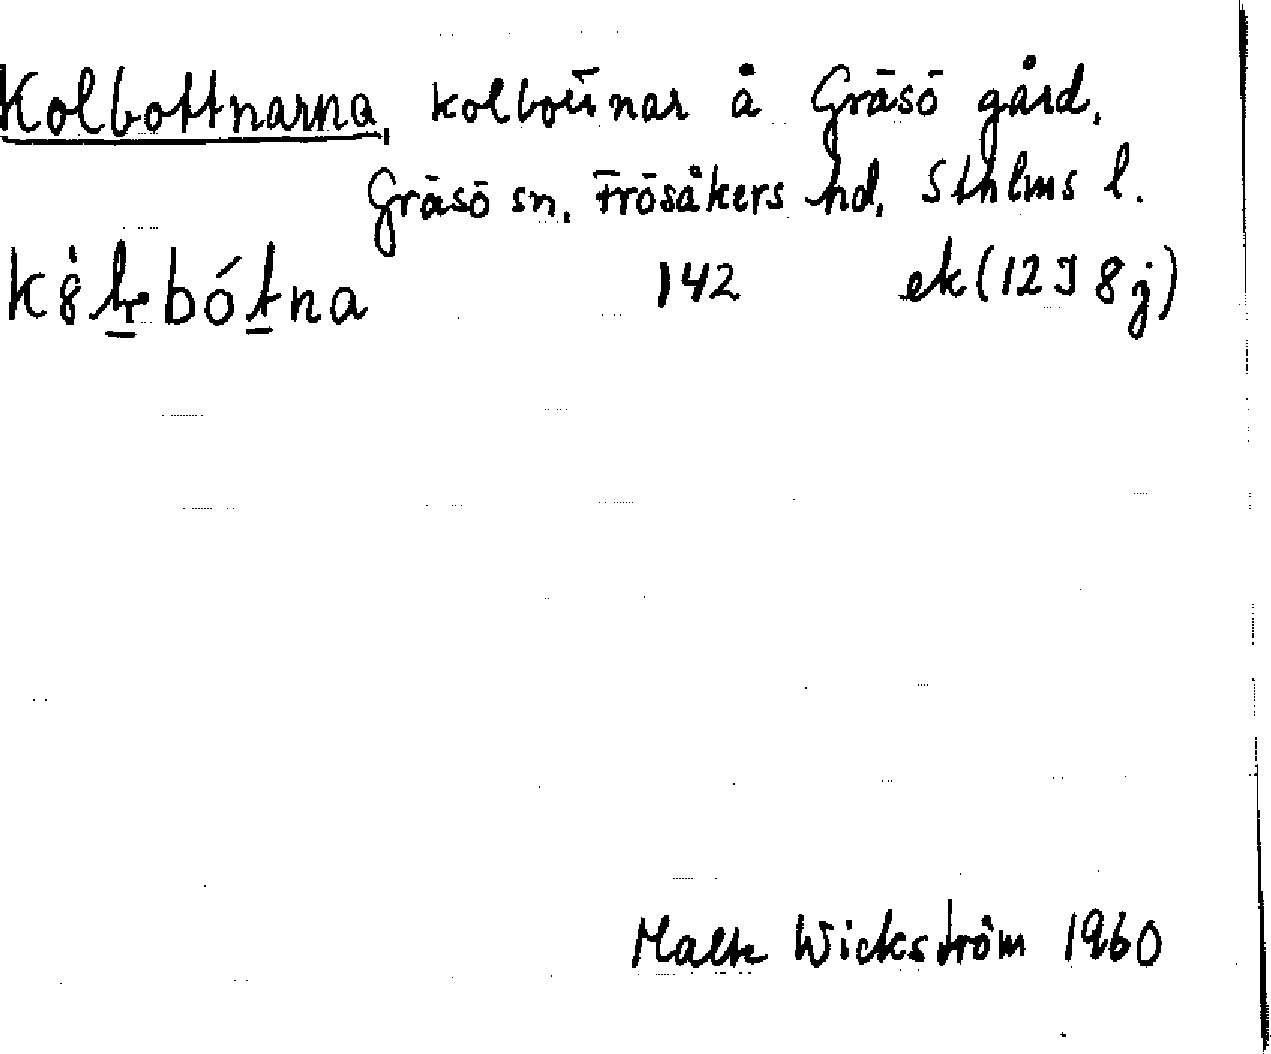 Kolbottnarna, kolbottnar å Gräsö gård,
Gräsö sn, Frösåkers hd, Sthlms l.
142 ek (12I 8j)
Malte Wickström 1960